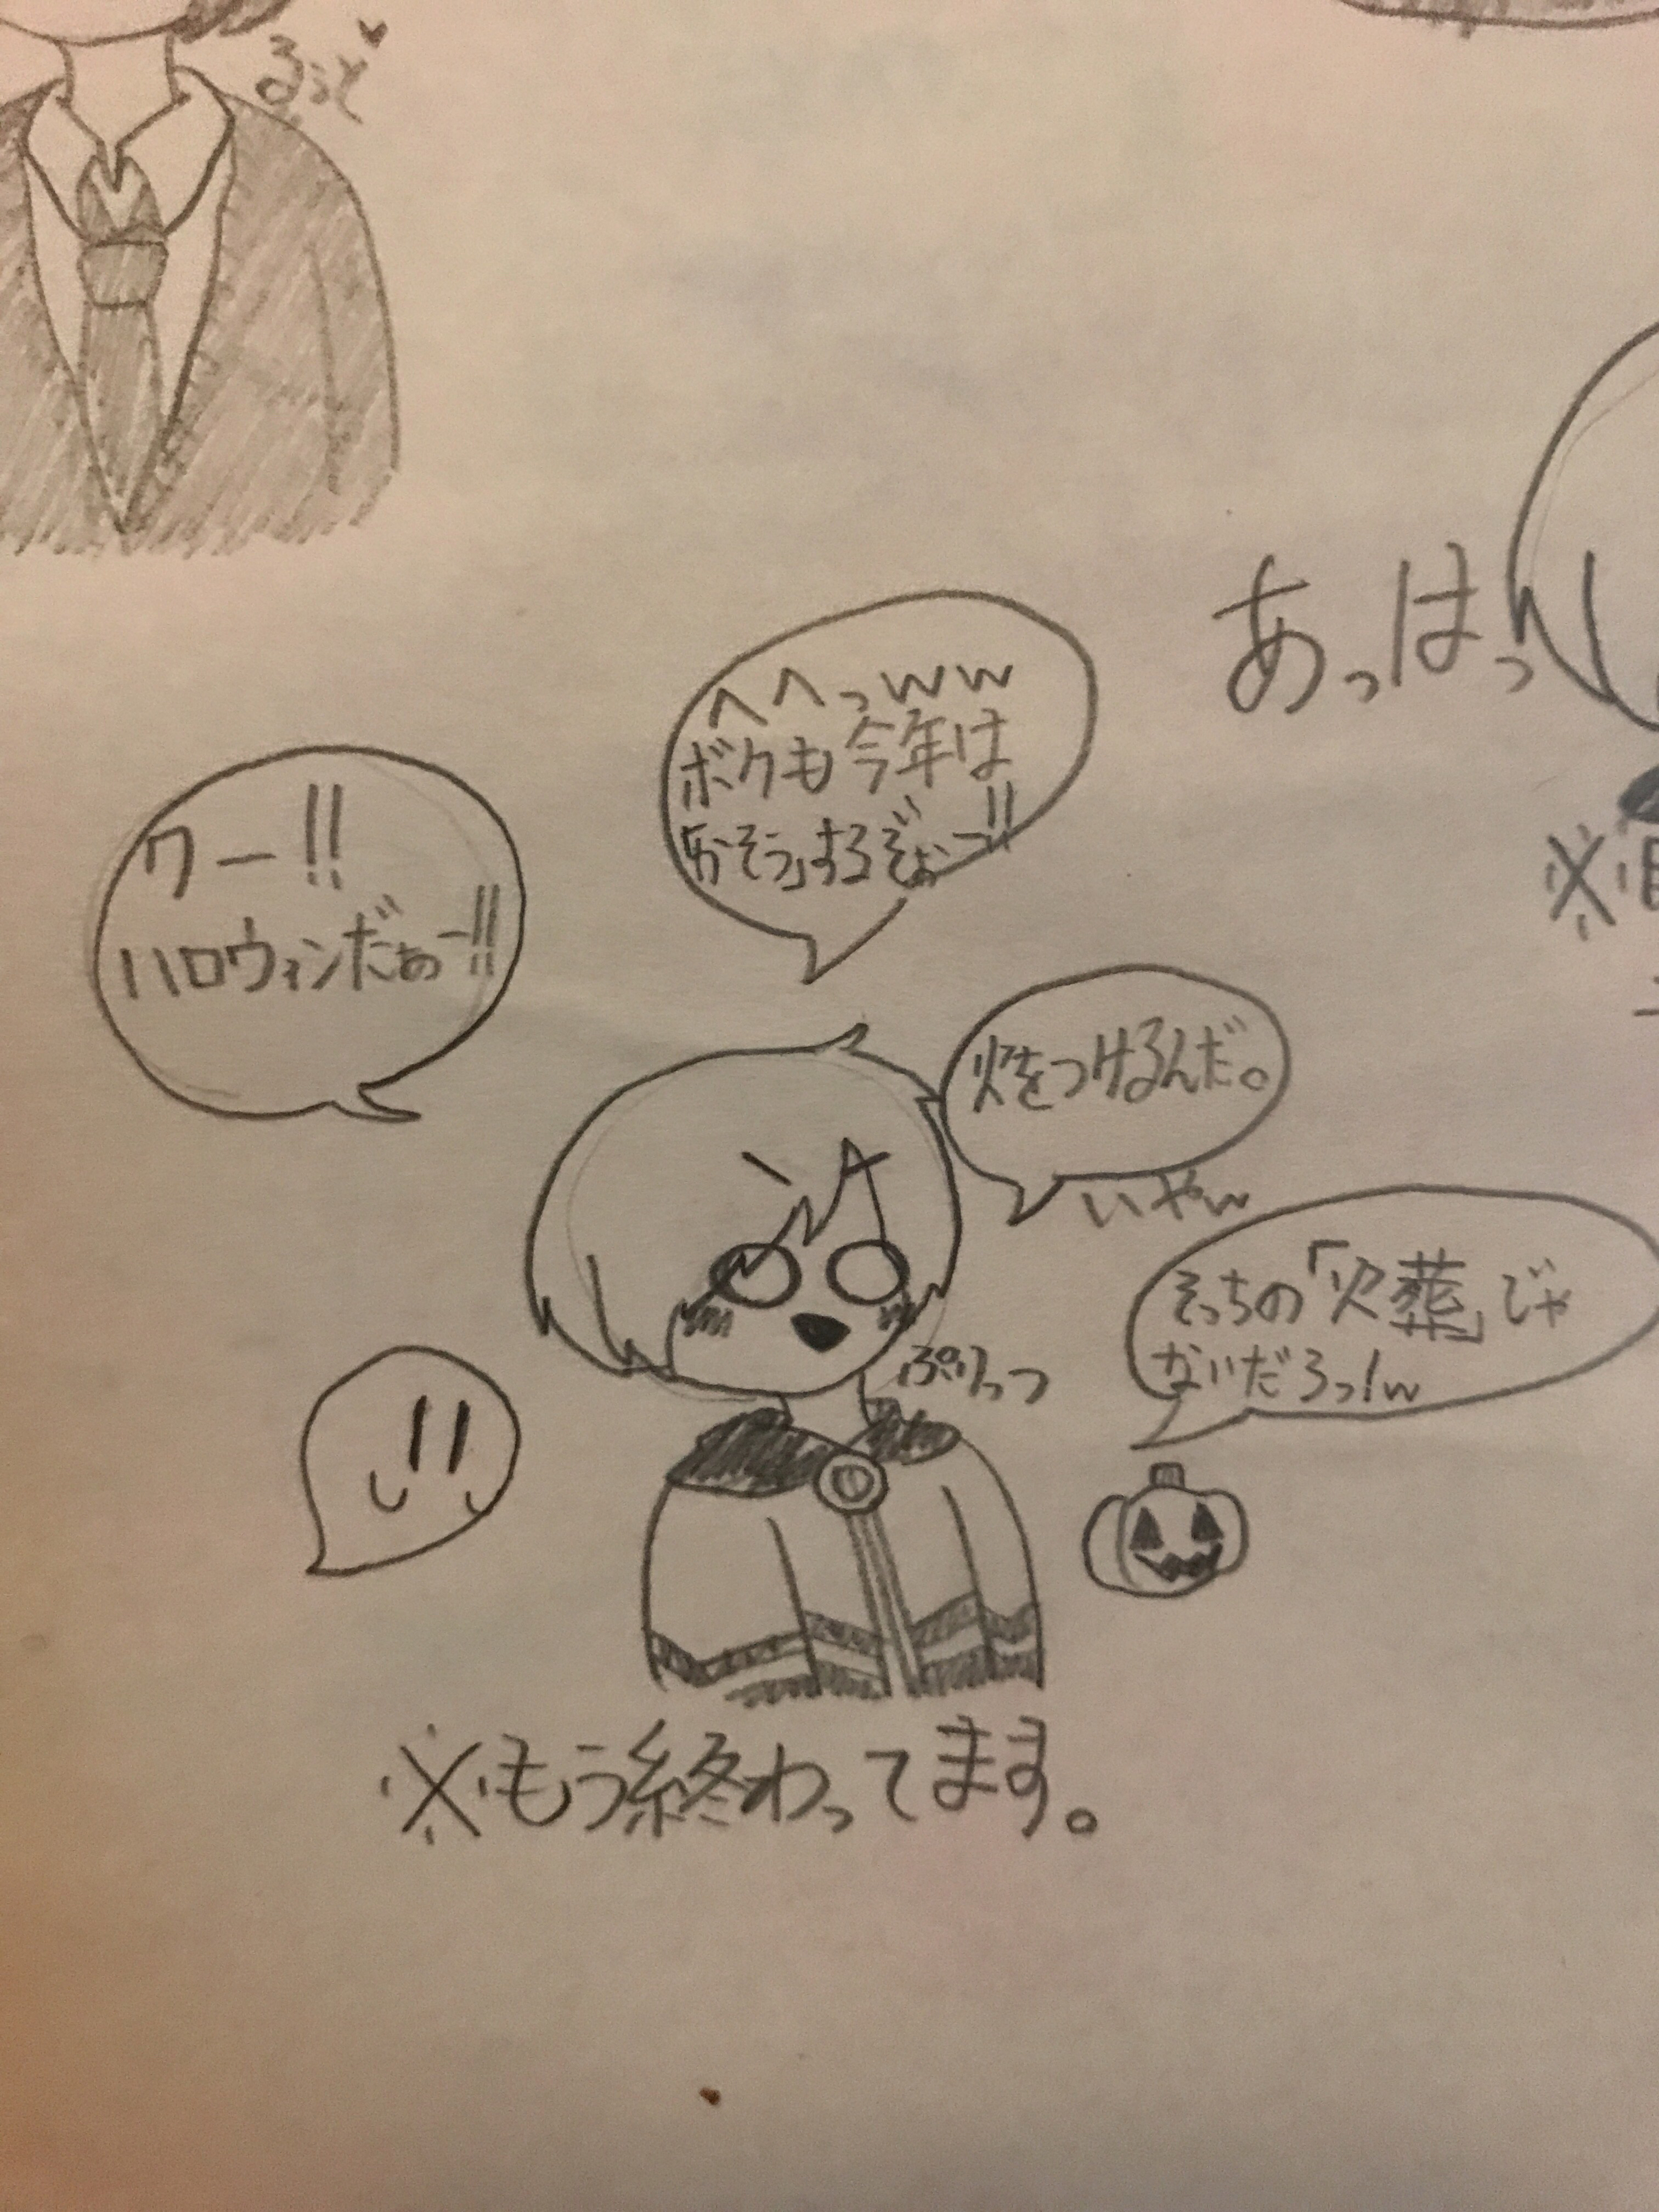 るぅと
あっはっ
へへっww
ボクも今年は
「かそう」するぞぉー!!
ワー!!
ハロウィンだぁー!!
火をつけるんだ。
いやw
そっちの「火葬」じゃ
ないだろっ!w
ぷりっつ
※もう終わってます。